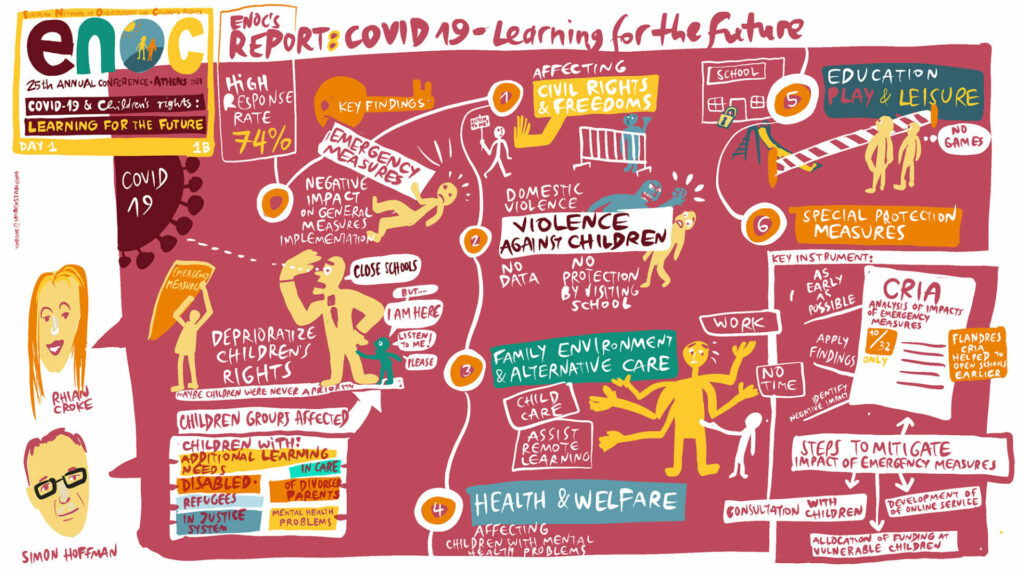 EUROPEAN NETWORK OF OMBUDSPERSONS FOR CHILDREN
enoc
25th ANNUAL CONFERENCE - ATHENS 2021
COVID-19 & Children's rights:
LEARNING FOR THE FUTURE
DAY 1
1B
ENOC'S
REPORT: COVID 19 - Learning for the Future
HIGH
RESPONSE
RATE
74%
COVID
19
RHIAN
CROKE
SIMON HOFFMAN
KEY FINDINGS:
0
EMERGENCY
MEASURES
NEGATIVE
IMPACT
ON GENERAL
MEASURES
IMPLEMENTATION
EMERGENCY
MEASURES
CLOSE SCHOOLS
BUT...
I AM HERE
LISTEN
TO ME!
PLEASE
DEPRIORATIZE
CHILDREN'S
RIGHTS
MAYBE CHILDREN WERE NEVER A PRIORITY
CHILDREN GROURS AFFECTED
CHILDREN WITH:
ADDITIONAL LEARNING
NEEDS
IN CARE
DISABLED.
OF DIVORCED
PARENTS
REFUGEES
IN JUSTICE
SYSTEM
MENTAL HEALTH
PROBLEMS
1
AFFECTING
CIVIL RIGHTS
& FREEDOMS
LISTEN
TO ME!
2
DOMESTIC
VIOLENCE
VIOLENCE
AGAINST CHILDREN
NO
DATA
NO
PROTECTION
BY VISITING
SCHOOL
3
FAMILY ENVIRONMENT
& ALTERNATIVE CARE
WORK
NO
TIME
CHILD
CARE
ASSIST
REMOTE
LEARNING
4
HEALTH & WELFARE
AFFECTING
CHILDREN WITH MENTAL
HEALTH PROBLEMS
SCHOOL
5
EDUCATION
PLAY & LEISURE
NO
GAMES
6
SPECIAL PROTECTION
MEASURES
KEY INSTRUMENT:
AS
EARLY
AS
POSSIBLE
APPLY
FINDINGS
IDENTIFY
NEGATIVE IMPACT
CRIA
ANALYSIS OF IMPACTS
OF EMERGENCY
MEASURES
10/32
ONLY
FLANDRES
CRIA
HELPED TO
OPEN SCHOOLS
EARLIER
STEPS TO MITIGATE
IMPACT OF EMERGENCY MEASURES
CONSULTATION WITH
CHILDREN
DEVELOPMENT OF
OF ONLINE SERVICE
ALLOCATION OF FUNDING AT
VULNERABLE CHILDREN